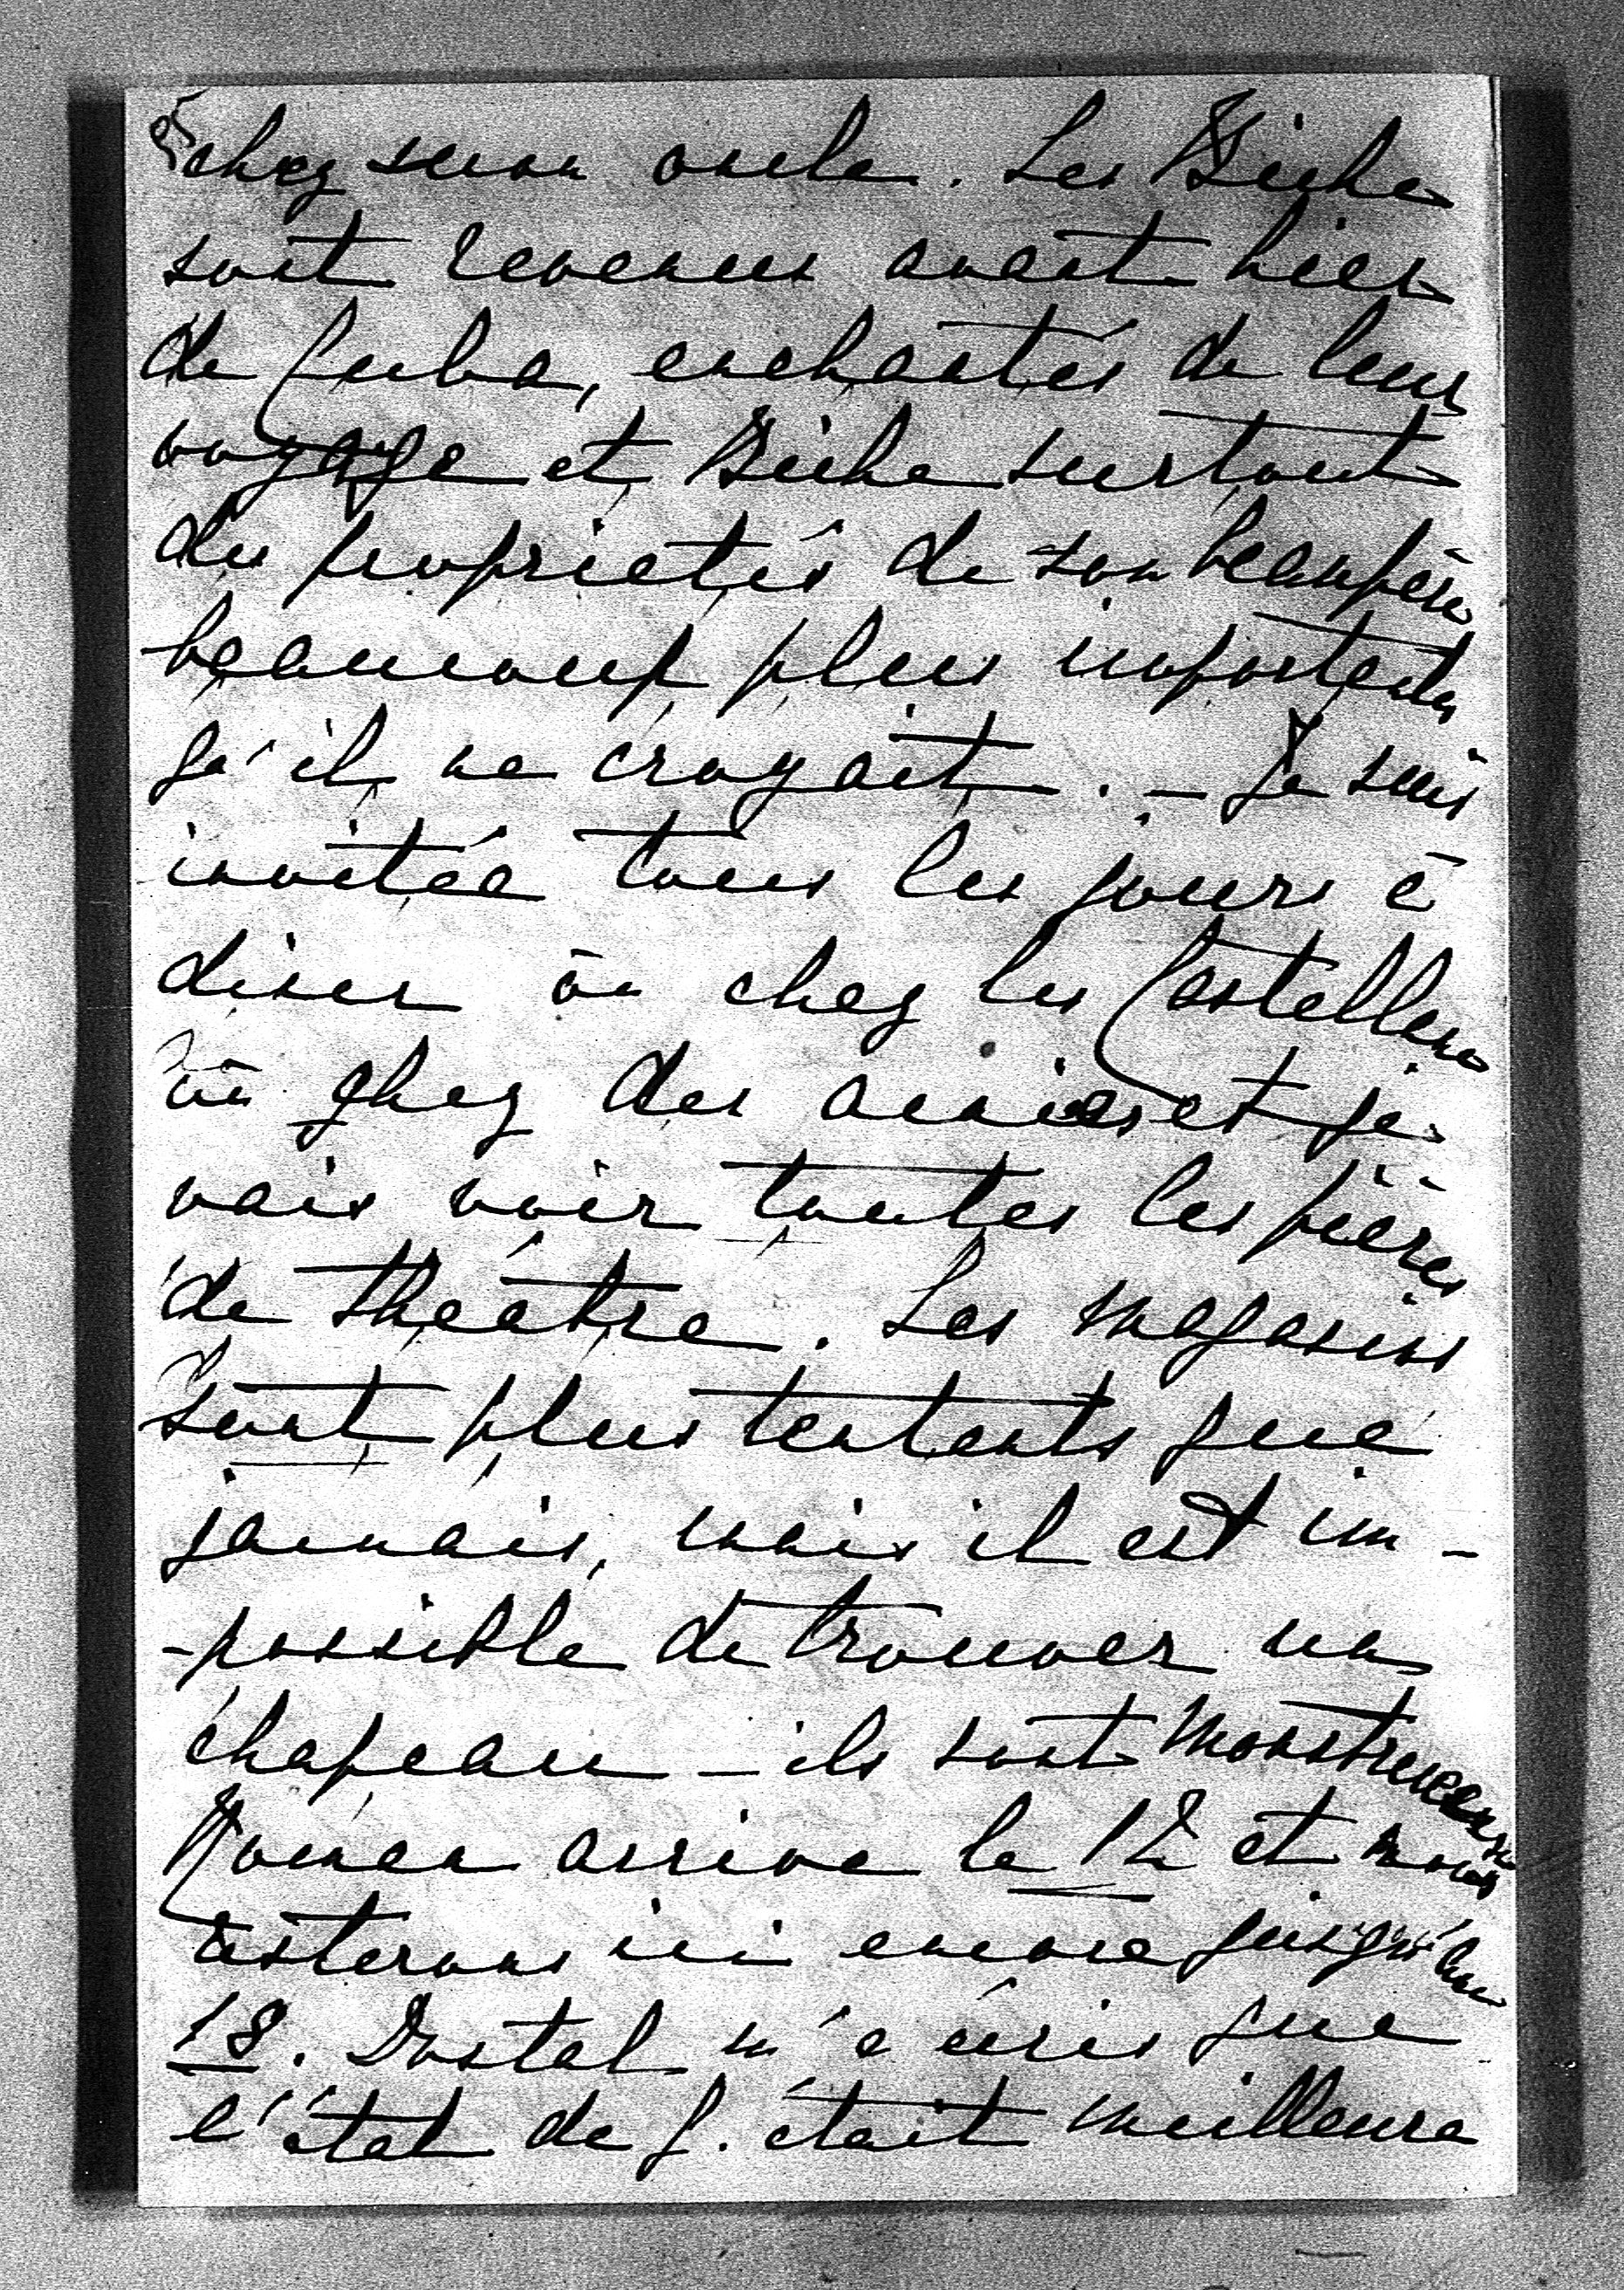 chez mon oncle. Les Biche
sont revenus avant hier
de Cuba, enchantés de leur
voyage et Biche surtout
des proprietés de son beaupère
beaucoup plus importantes
qu'il ne croyait. – Je suis
invitée tous les jours à
diner ou chez les Castellane
ou chez des amies et je
vais voir toutes les pièces
de théâtre. Les magasins
sont plus tentents que
jamais, mais il est im-
-possible de trouver un
chapeau – ils sont monstrueux
arrive le 12 et nous
resterons ici encore jusqu'au
18. Dostal m'a écris que
l'état de J. était meilleure